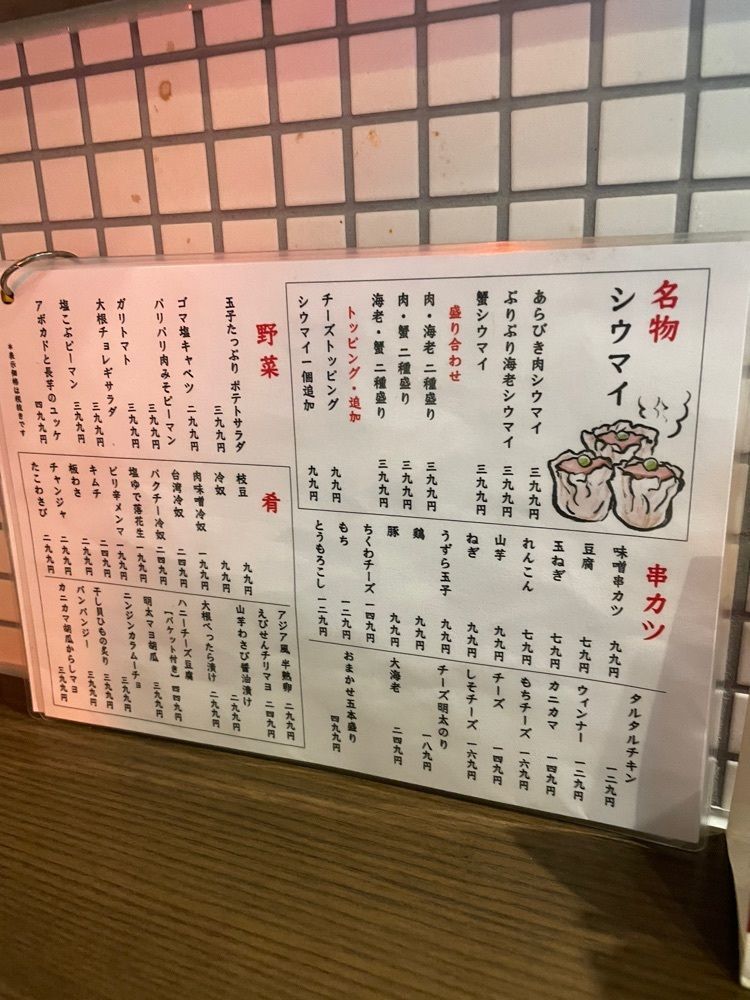 名物
シウマイ
あらびき肉シウマイ 三九九円
ぷりぷり海老シウマイ 三九九円
蟹シウマイ 三九九円
盛り合わせ
肉・海老 二種盛り 三九九円
肉・蟹 二種盛り 三九九円
海老・蟹 二種盛り 三九九円
トッピング・追加
チーズトッピング 九九円
シウマイ一個追加 九九円
野菜
玉子たっぷり ポテトサラダ 三九九円
ゴマ塩キャベツ 二九九円
パリパリ肉みそピーマン 三九九円
ガリトマト 三九九円
大根チョレギサラダ 三九九円
塩こぶピーマン 三九九円
アボカドと長芋のユッケ 四九九円
*表示価格は税抜きです
串カツ
味噌串カツ 九九円
豆腐 七九円
玉ねぎ 七九円
れんこん 七九円
山芋 九九円
ねぎ 九九円
うずら玉子 九九円
鶏 九九円
豚 九九円
ちくわチーズ 一四九円
もち 一二九円
とうもろこし 一二九円
タルタルチキン 一二九円
ウィンナー 一二九円
カニカマ 一四九円
もちチーズ 一六九円
チーズ 一四九円
しそチーズ 一六九円
チーズ明太のり 一八九円
大海老 二四九円
おまかせ五本盛り 四九九円
肴
枝豆 九九円
冷奴 九九円
肉味噌冷奴 一九九円
台湾冷奴 二四九円
パクチー冷奴 二四九円
塩ゆで落花生 一九九円
ピリ辛メンマ 一九九円
キムチ 二四九円
板わさ 二九九円
チャンジャ 二九九円
たこわさび 二九九円
アジア風 半熟卵 二九九円
えびせんチリマヨ 二四九円
山芋わさび醤油漬け 二九九円
大根べったら漬け 二九九円
ハニーチーズ豆腐
(バケット付き) 四四九円
明太マヨ胡瓜 三九九円
ニンジンカラムーチョ 三九九円
干し貝ひもの炙り 三九九円
バンバンジー 三九九円
カニカマ胡瓜からしマヨ 三九九円